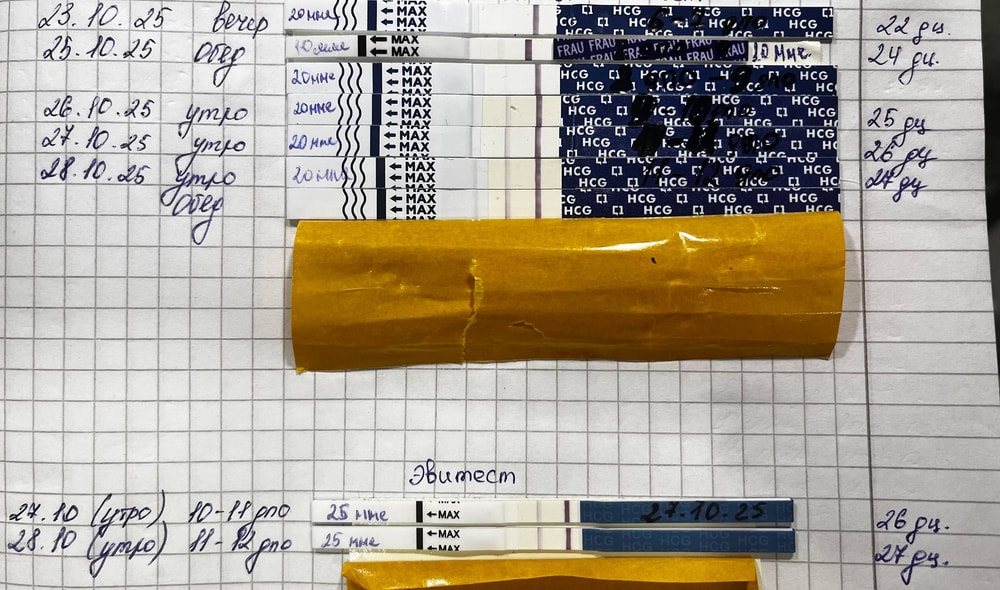 23.10.25 вечер 20мме MAX MAX HCG 22 дц.
25.10.25 Обед 10мме MAX MAX FRAU FRAU FRAU FRAU 10 мме. 24 дц.
20мме MAX MAX HCG HCG HCG
26.10.25 утро 20мме MAX MAX HCG HCG HCG 25 дц
27.10.25 утро 20мме MAX MAX HCG HCG 26 дц
28.10.25 утро 20мме MAX MAX HCG HCG 11-12 дпо 27 дц
Обед MAX MAX HCG HCG HCG HCG
Эвитест
27.10 (утро) 10-11 дпо 25 мме MAX 27.10.25 26 дц.
28.10 (утро) 11-12 дпо 25 мме MAX MAX 27 дц.